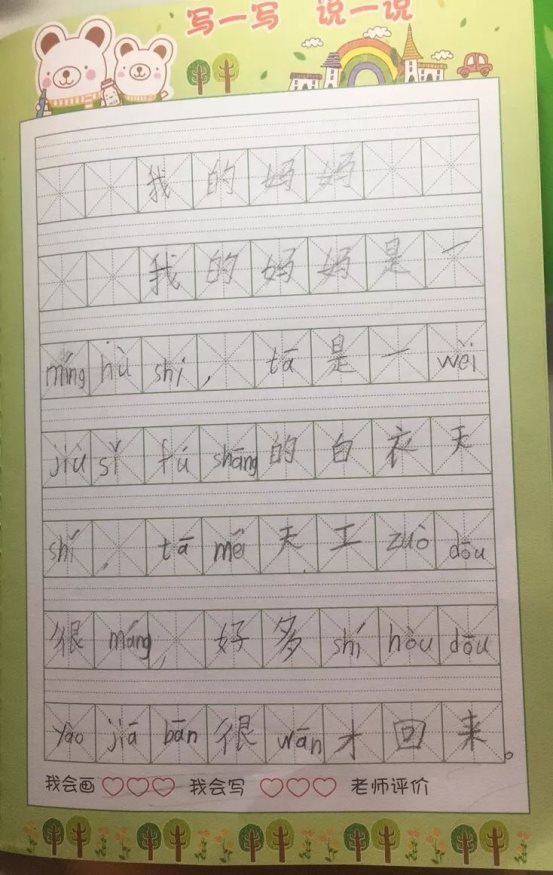 写一写 说一说
我的妈妈
我的妈妈是一
míng hù shi，tā是一wèi
jiù sǐ fú shāng的白衣天
shí，tā měi天工zuò dōu
很máng，好多shí hòu dōu
yào jiā bān很wǎn才回来。
我会画♡♡♡ 我会写♡♡♡ 老师评价